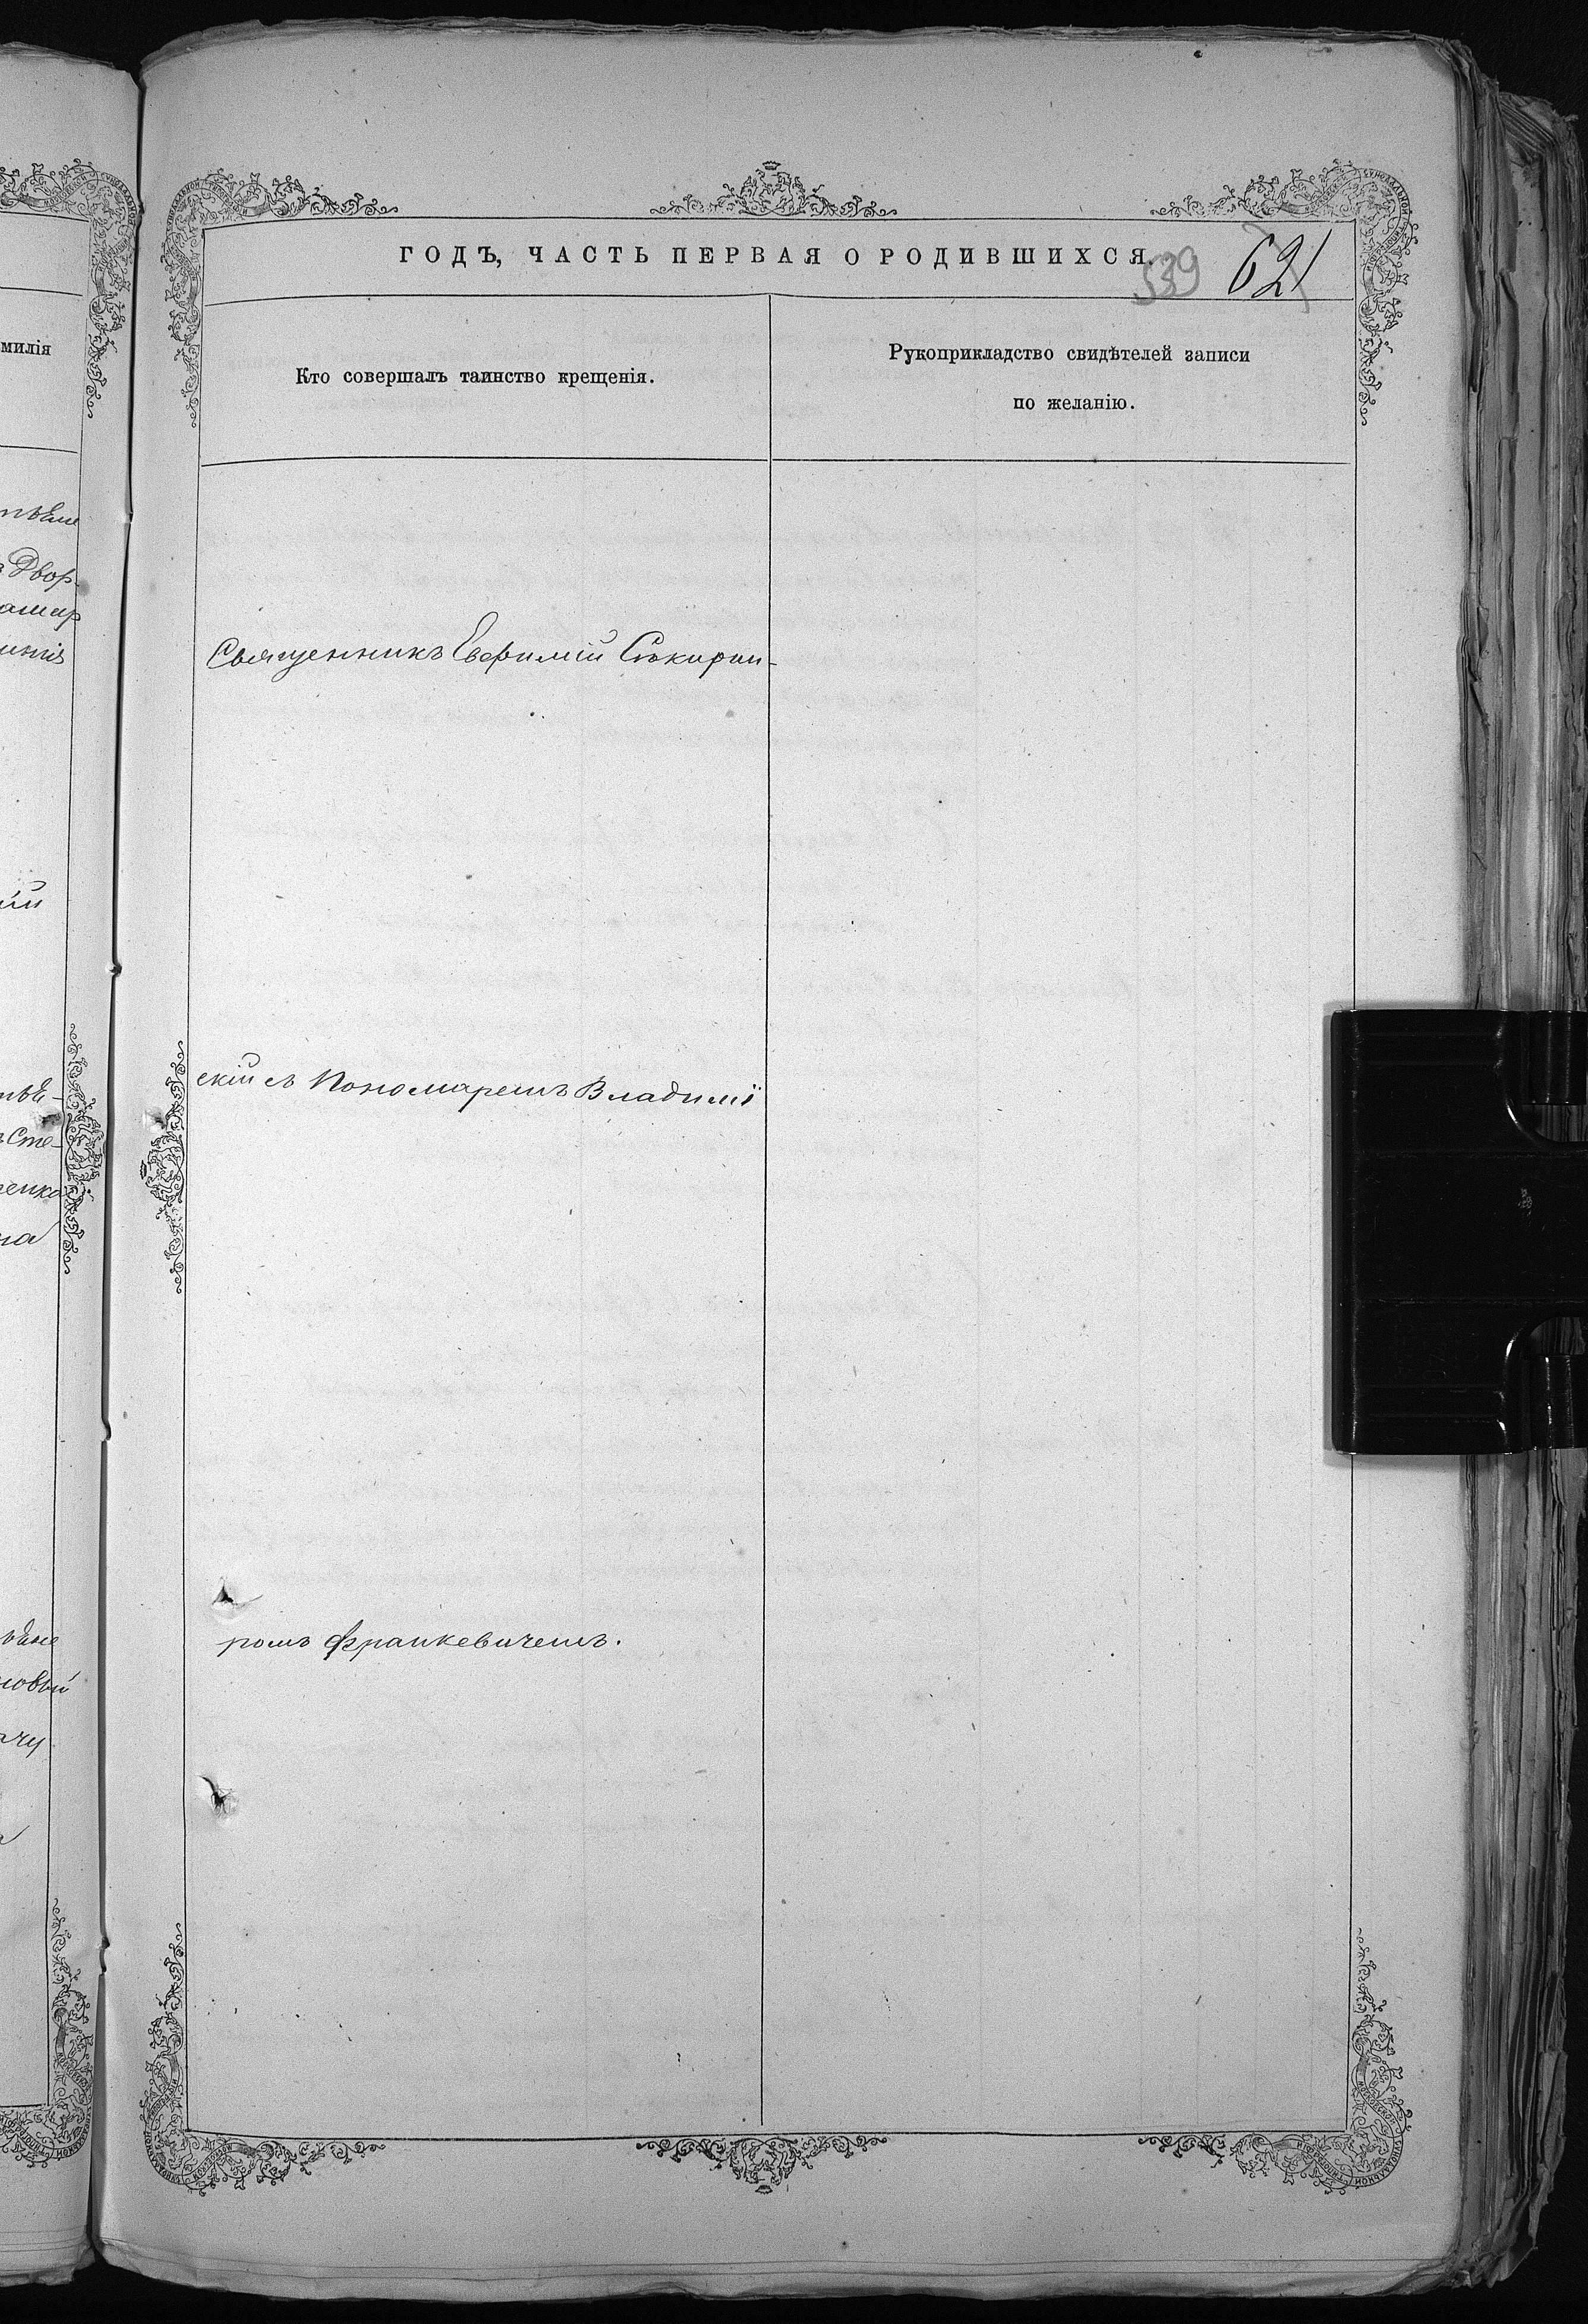 милія
Двор-
ГОДЪ, ЧАСТЬ ПЕРВАЯ О РОДИВШИХСЯ.
539 621
Кто совершалъ таинство крещенія.
Рукоприкладство свидѣтелей записи
по желанію.
Священникъ Евфимій Сѣкирин-
скій съ Пономаремъ Владимі
ромъ Франкевичемъ.